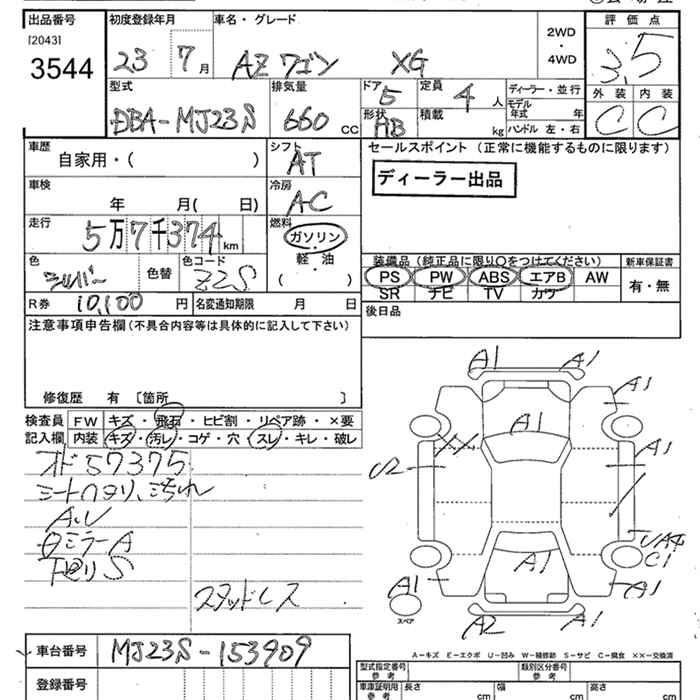 出品番号 初度登録年月 車名・グレード 評価点
[2043] 2WD・4WD 3.5
3544 23 7月 AZワゴン XG 外装 内装
型式 排気量 ドア 5 定員 4人 ディーラー・並行 C C
DBA-MJ23S 660 CC 形状 HB 積載 kg モデル年式 年 ハンドル 左・右
車歴 シフト セールスポイント (正常に機能するものに限ります)
自家用・( ) AT ディーラー出品
車検 冷房
年 月( 日) AC
走行 燃料
5万7千374km ガソリン
軽・油
( )
装備品 (純正品に限り○をつけてください) 新車保証書
色 シルバー 色替 色コード Z2S PS PW ABS エアB AW 有・無
SR ナビ TV カワ
R券 10,100円 名変通知期限 月 日 後日品
注意事項申告欄 (不具合内容等は具体的に記入して下さい)
修復歴 有 [箇所 ]
検査員 FW キズ・飛石・ヒビ割・リペア跡・×要
記入欄 内装 キズ・汚レ・コゲ・穴・スレ・キレ・破レ
オド57375
シートヘタリ、汚れ
A.U
ミラーA
下回りS
スタッドレス
A1 A1
A1
A1 A1
XX
U2
UA4
C1
A1 A1 A1
スペア
A2 A1
A-キズ E-エクボ U-凹み W-補修跡 S-サビ C-腐食 ××-交換済
車台番号 MJ23S-153909
型式指定番号 参考 類別区分番号 参考
登録番号 車庫証明用 参考 長さ cm 幅 cm 高さ cm